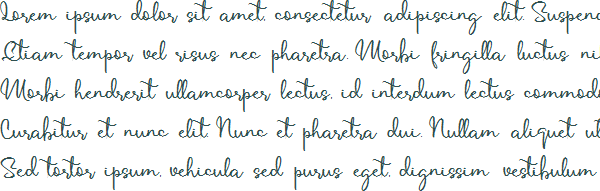 Lorem ipsum dolor sit amet, consectetur adipiscing elit. Suspend
Etiam tempor vel risus nec pharetra. Morbi fringilla luctus ni
Morbi hendrerit ullamcorper lectus, id interdum lectus commod
Curabitur et nunc elit. Nunc et pharetra dui. Nullam aliquet ut
Sed tortor ipsum, vehicula sed purus eget, dignissim vestibulum